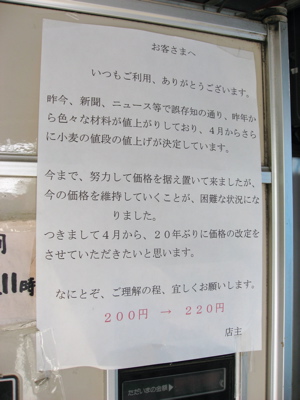 お客さまへ
いつもご利用、ありがとうございます。
昨今、新聞、ニュース等で誤存知の通り、昨年か
ら色々な材料が値上がりしており、4月からさら
に小麦の値段の値上げが決定しています。
今まで、努力して価格を据え置いて来ましたが、
今の価格を維持していくことが、困難な状況にな
りました。
つきまして4月から、20年ぶりに価格の改定を
させていただきたいと思います。
なにとぞ、ご理解の程、宜しくお願いします。
200円 → 220円
店主
11時
ただいまの金額